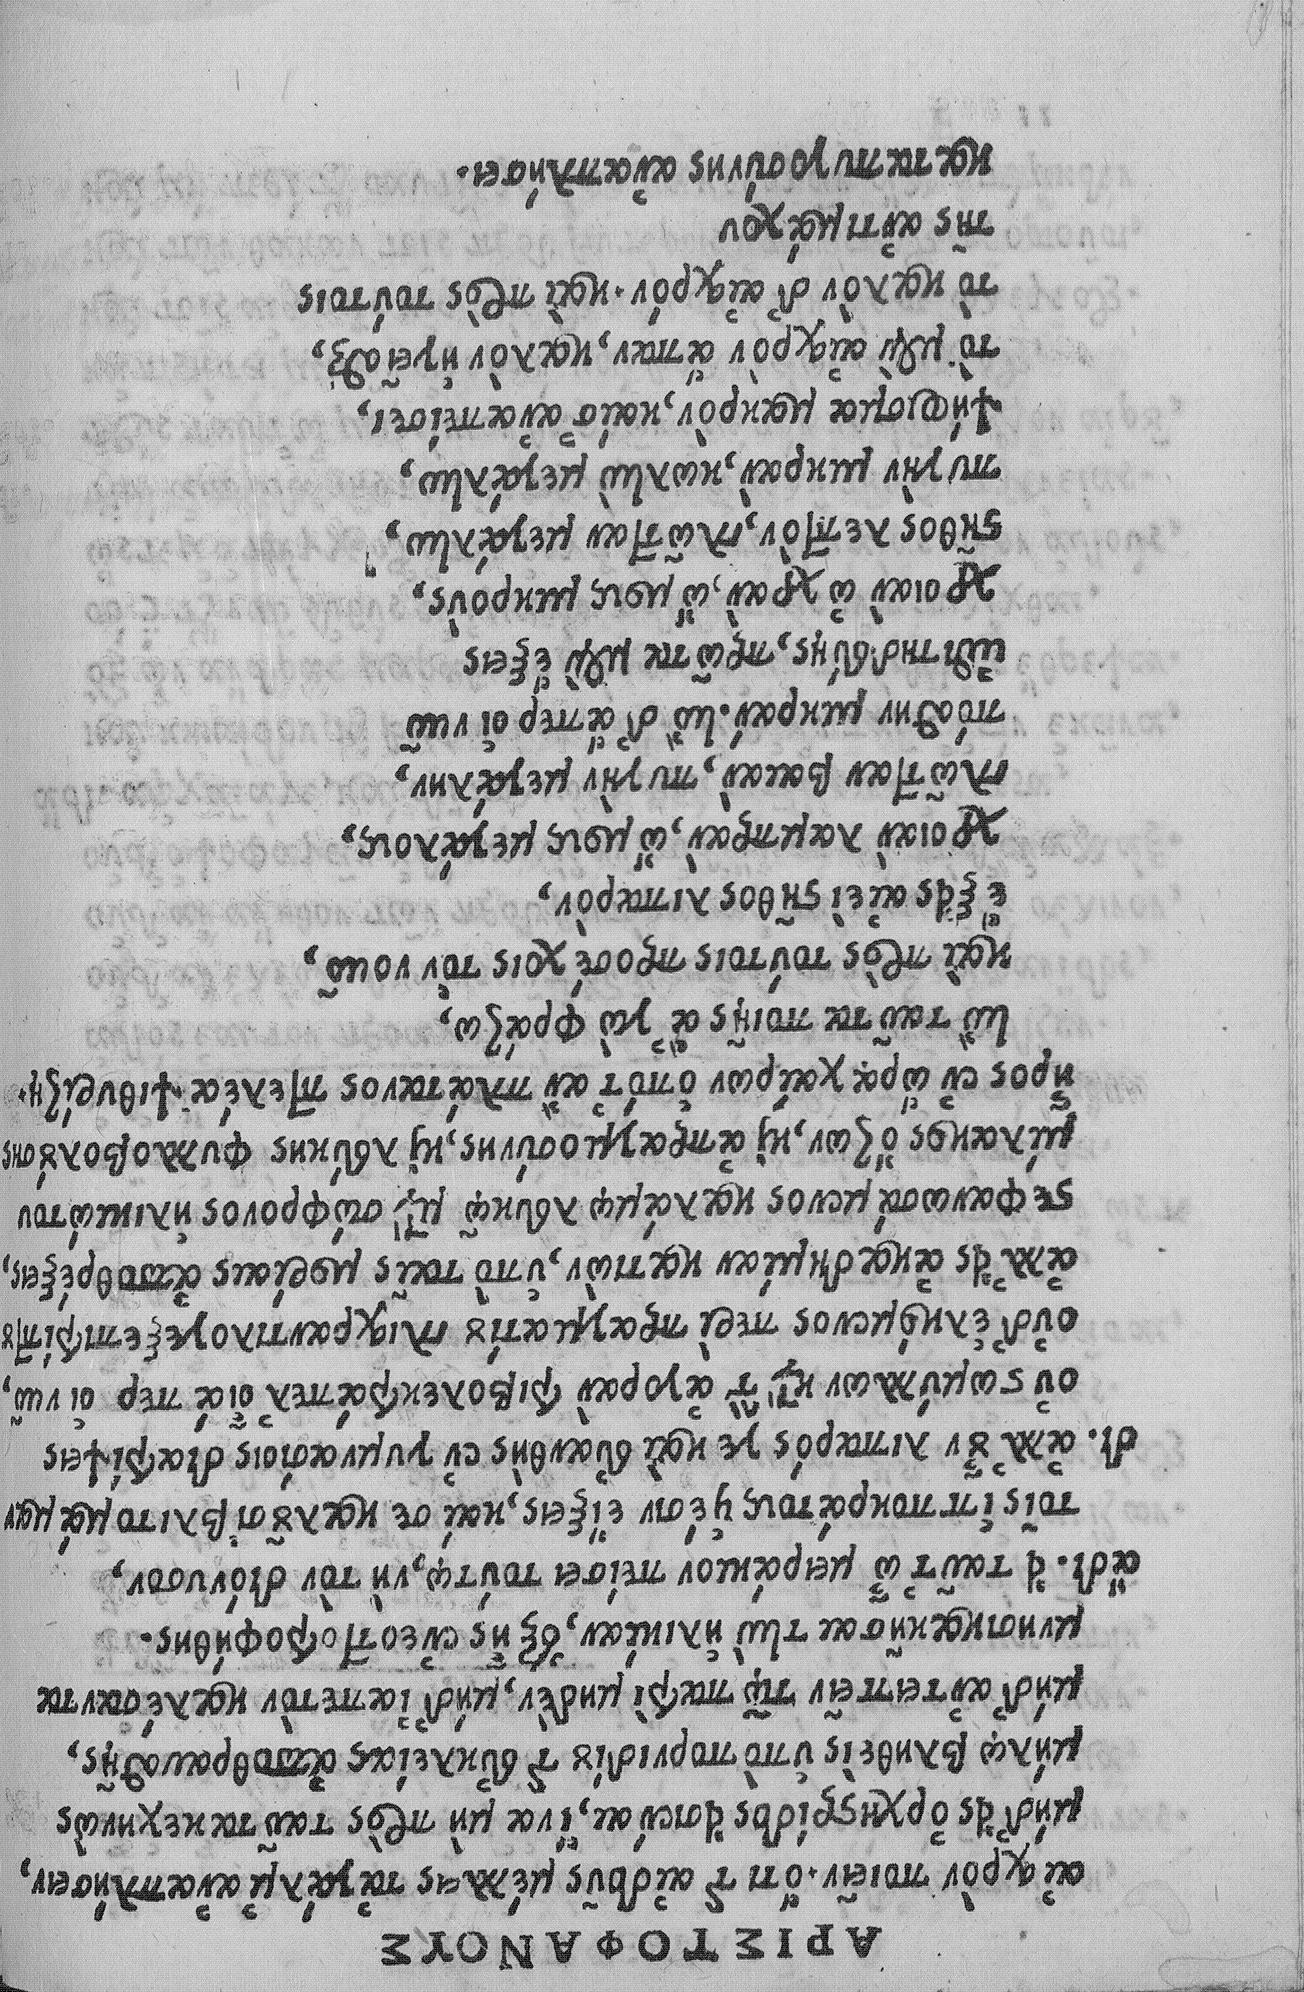 ΑΡΙΣΤΟΦΑΝΟΥΣ
αἰσχρὸν ποιεῖν. ὅτι τῆς αἰδοῦς μέλλεις τἄγαλμ' ἀναπλήσειν,
μήδ' εἰς ὀρχηστρίδος εἰσιέναι, ἵνα μὴ πρὸς ταῦτα κεχηνὼς
μήλῳ βληθεὶς ὑπὸ πορνιδίου τῆς εὐκλείας ἀποθραυσθῇς,
μήδ' ἀντειπεῖν τῷ πατρὶ μηδὲν, μήδ' ἰαπετὸν καλέσαντα
μνησικακῆσαι τὴν ἡλικίαν, ἐξ ἧς ἐνεοττοτροφήθης.
ἄδι. εἰ ταῦτ' ὦ μειράκιον πείσει τούτῳ, νὴ τὸν διόνυσον,
τοῖς ἱπποκράτους υἱέσιν εἴξεις, καί σε καλοῦσι βλιτομάμμαν
δι. ἀλλ' οὖν λιπαρός γε καὶ εὐανθὴς ἐν γυμνασίοις διατρίψεις
οὐ στωμύλλων κατὰ τὴν ἀγορὰν τριβολεκτράπελ' οἷά περ οἱ νῦν,
οὐδ' ἑλκόμενος περὶ πραγματίου γλισχραντιλογεξεπιτρίπτου
ἀλλ' εἰς ἀκαδημίαν κατιὼν, ὑπὸ ταῖς μορίαις ἀποθρέξεις,
στεφανωσάμενος καλάμῳ λευκῷ μετὰ σώφρονος ἡλικιώτου
μίλακος ὄζων, καὶ ἀπραγμοσύνης, καὶ λεύκης φυλλοβολούσης
ἦρος ἐν ὥρᾳ χαίρων ὁπόταν πλάτανος πτελέᾳ ψιθυρίζῃ.
ἢν ταῦτα ποιῇς ἃ 'γὼ φράζω,
καὶ πρὸς τούτοις προσέχοις τὸν νοῦν,
ἕξεις ἀεὶ στῆθος λιπαρὸν,
χροιὰν λαμπρὰν, ὤμους μεγάλους,
γλῶτταν βαιὰν, πυγὴν μεγάλην,
πόσθην μικράν. ἢν δ' ἅπερ οἱ νῦν
ἐπιτηδεύῃς, πρῶτα μὲν ἕξεις
χροιὰν ὠχρὰν, ὤμους μικροὺς,
στῆθος λεπτὸν, γλῶτταν μεγάλην,
πυγὴν μικρὰν, κωλὴν μεγάλην,
ψήφισμα μακρὸν, καί σ' ἀναπείσει,
τὸ μὲν αἰσχρὸν ἅπαν, καλὸν ἡγεῖσθαι,
τὸ καλὸν δ' αἰσχρόν. καὶ πρὸς τούτοις
τῆς ἀντιμάχου
καταπυγοσύνης ἀναπλήσει.